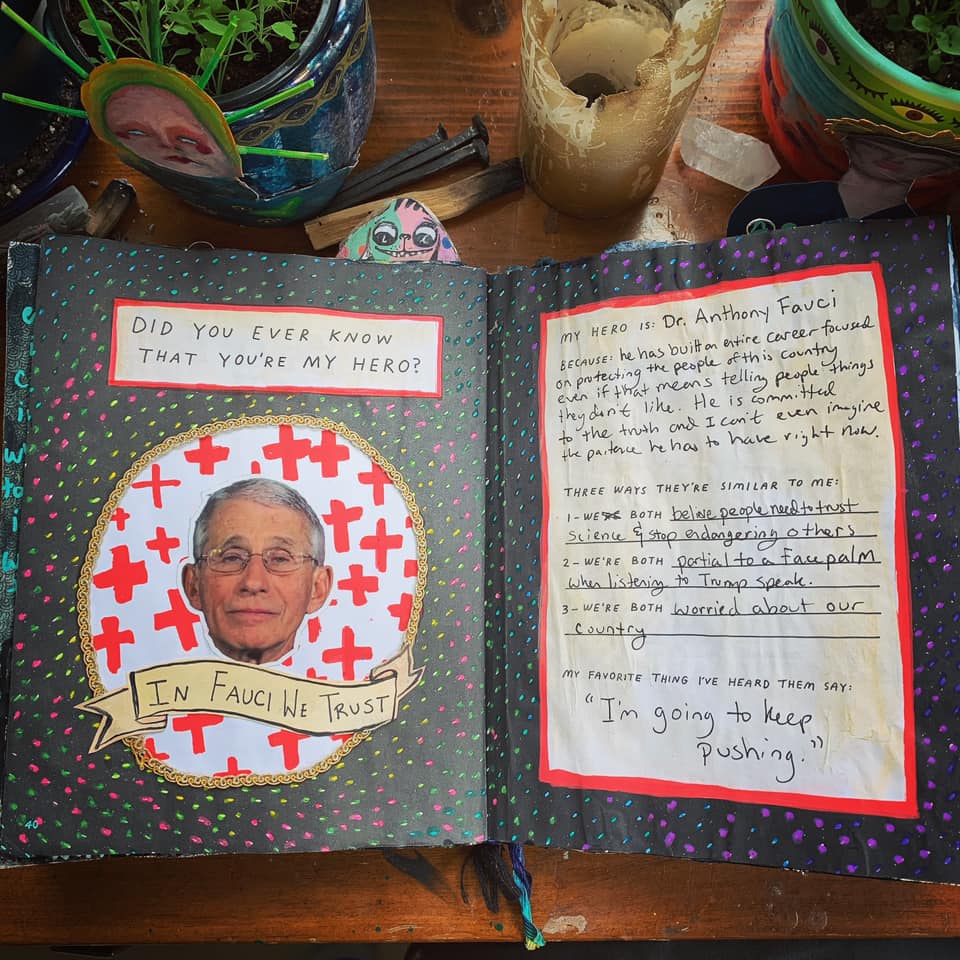 DID YOU EVER KNOW
THAT YOU'RE MY HERO?
IN FAUCI WE TRUST
40
MY HERO IS: Dr. Anthony Fauci
BECAUSE: he has built an entire career focused
on protecting the people of this country
even if that means telling people things
they don't like. He is committed
to the truth and I can't even imagine
the paitence he has to have right now.
THREE WAYS THEY'RE SIMILAR TO ME:
1- WE BOTH believe people need to trust
science & stop endangering others
2- WE'RE BOTH partial to a facepalm
when listening to Trump speak.
3- WE'RE BOTH worried about our
country
MY FAVORITE THING I'VE HEARD THEM SAY:
"I'm going to keep
pushing."